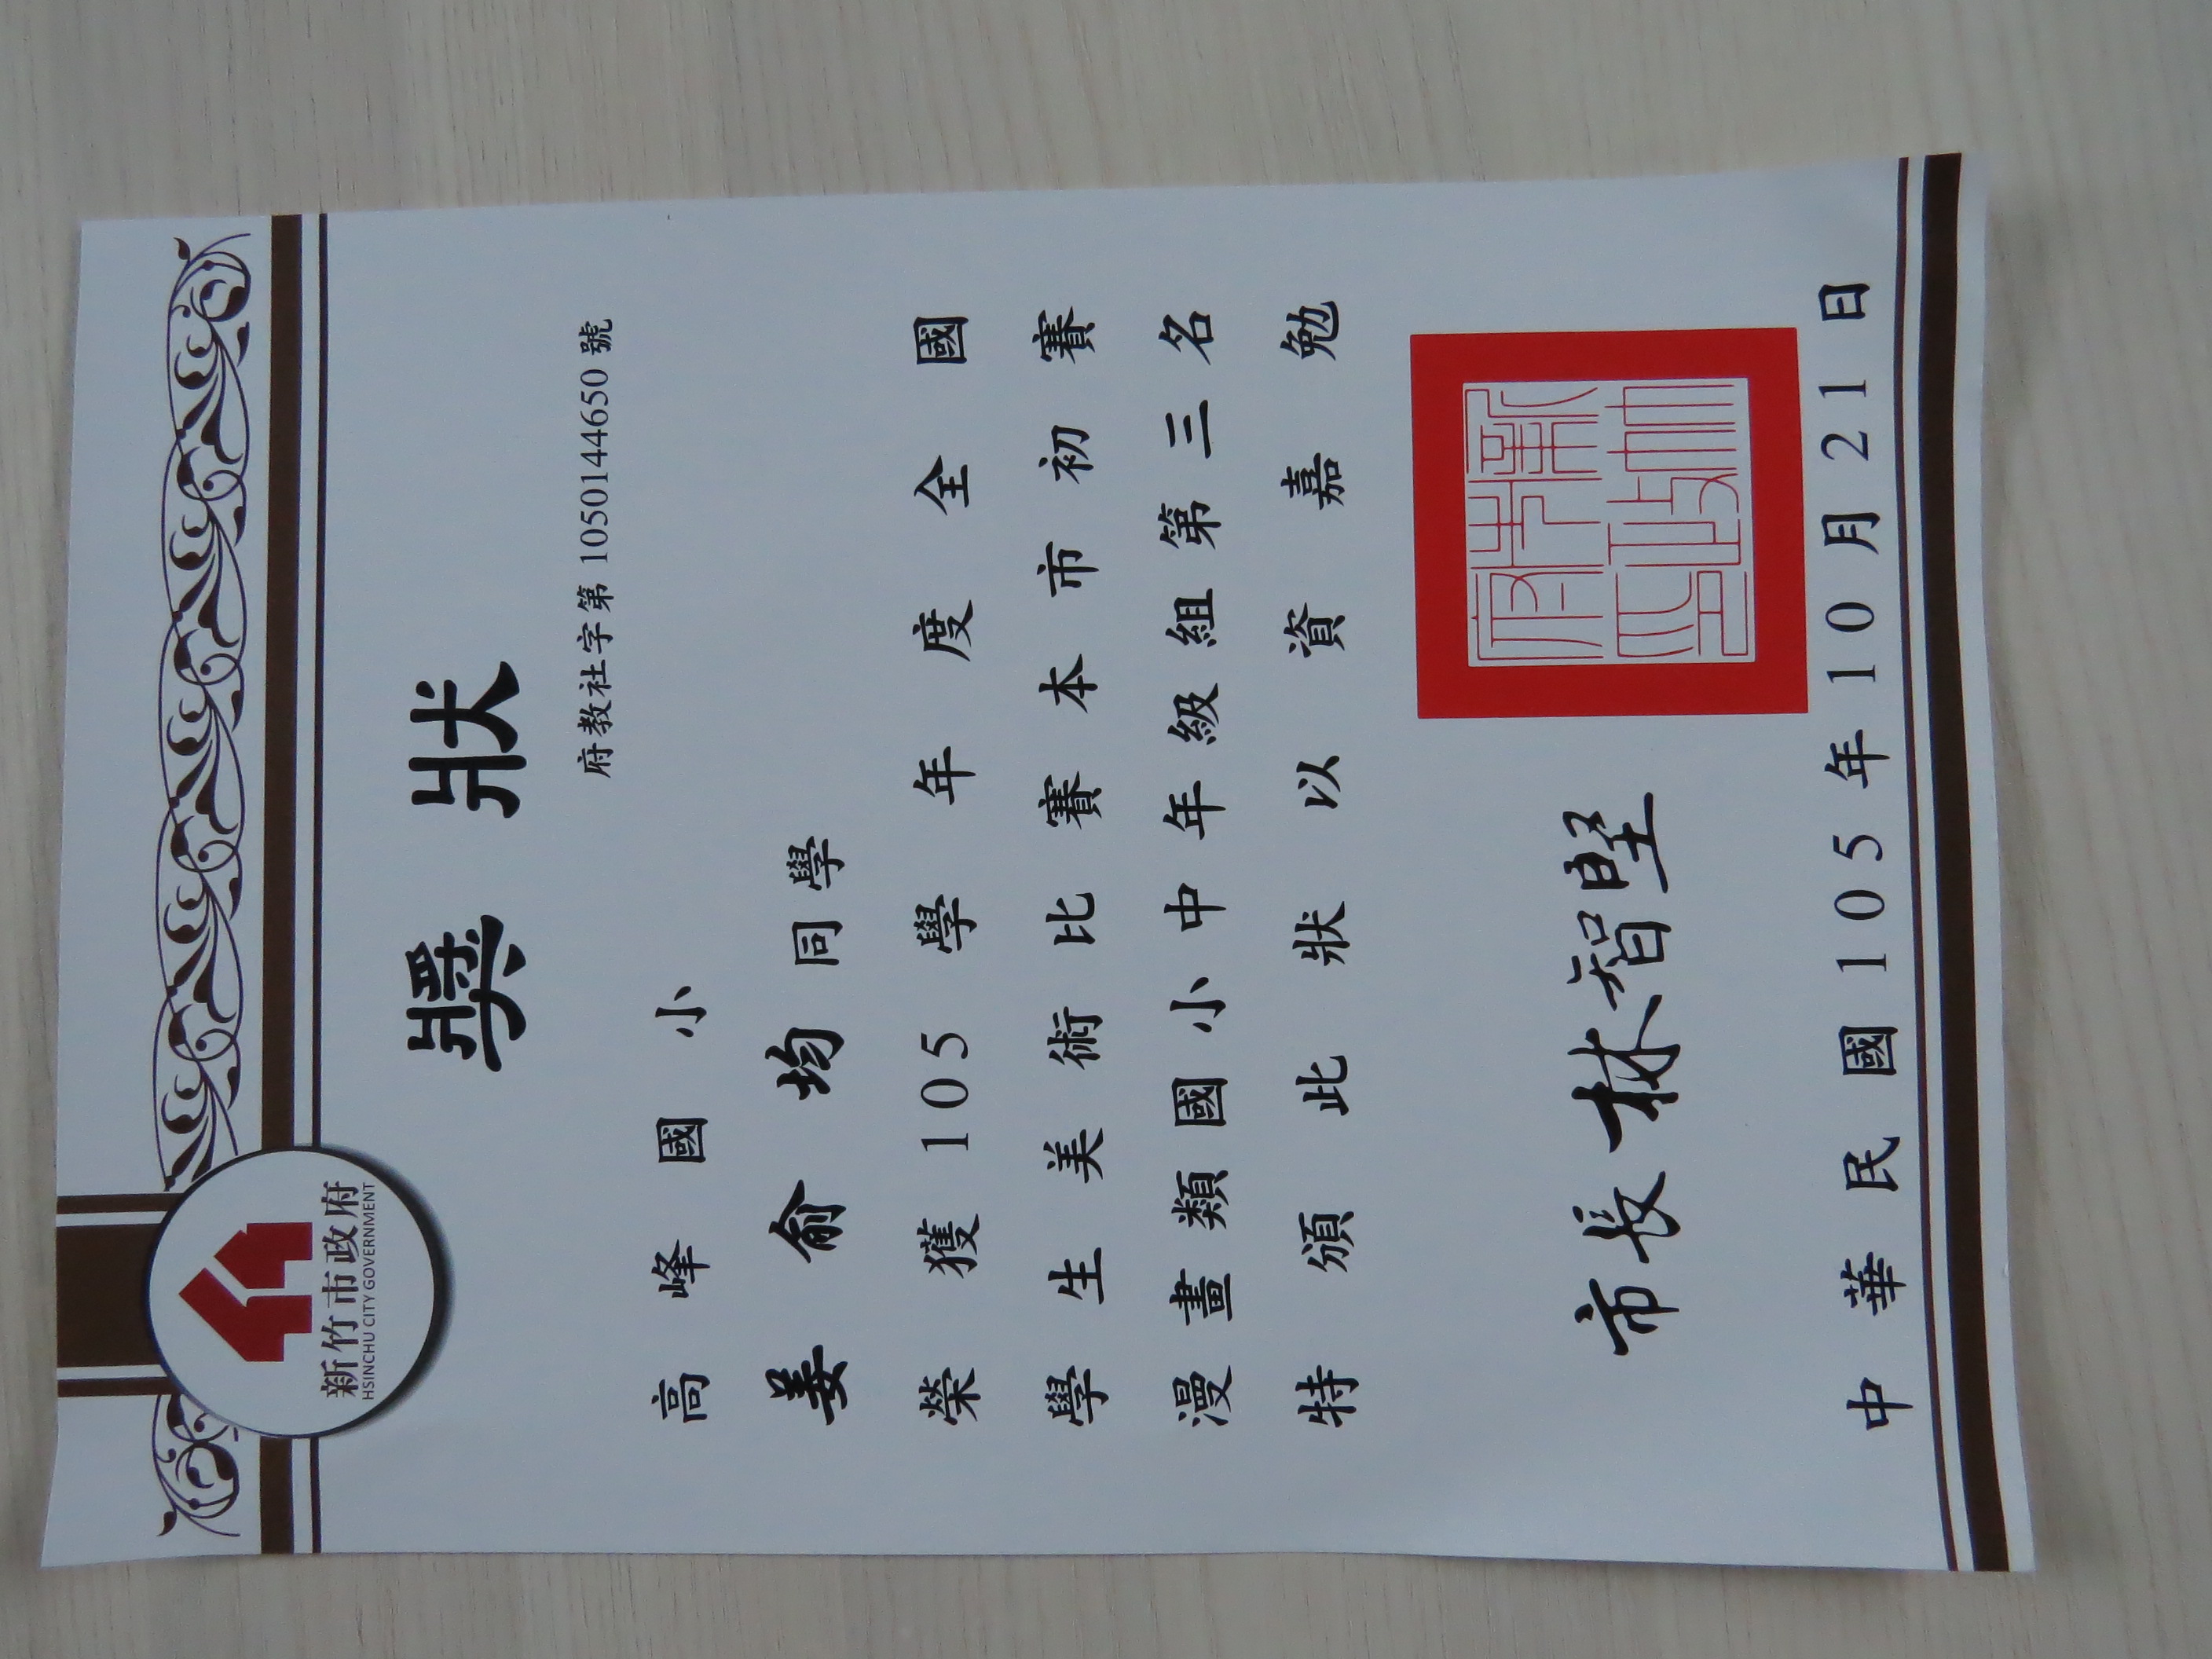 新竹市政府
HSINCHU CITY GOVERNMENT
獎狀
府教社字第 1050144650 號
高峰國小
姜俞均同學
榮獲 105 學年度全國
學生美術比賽本市初賽
漫畫類國小中年級組第三名
特頒此狀以資嘉勉
市長林智堅
新竹市政府印
中華民國 105 年 10 月 21 日